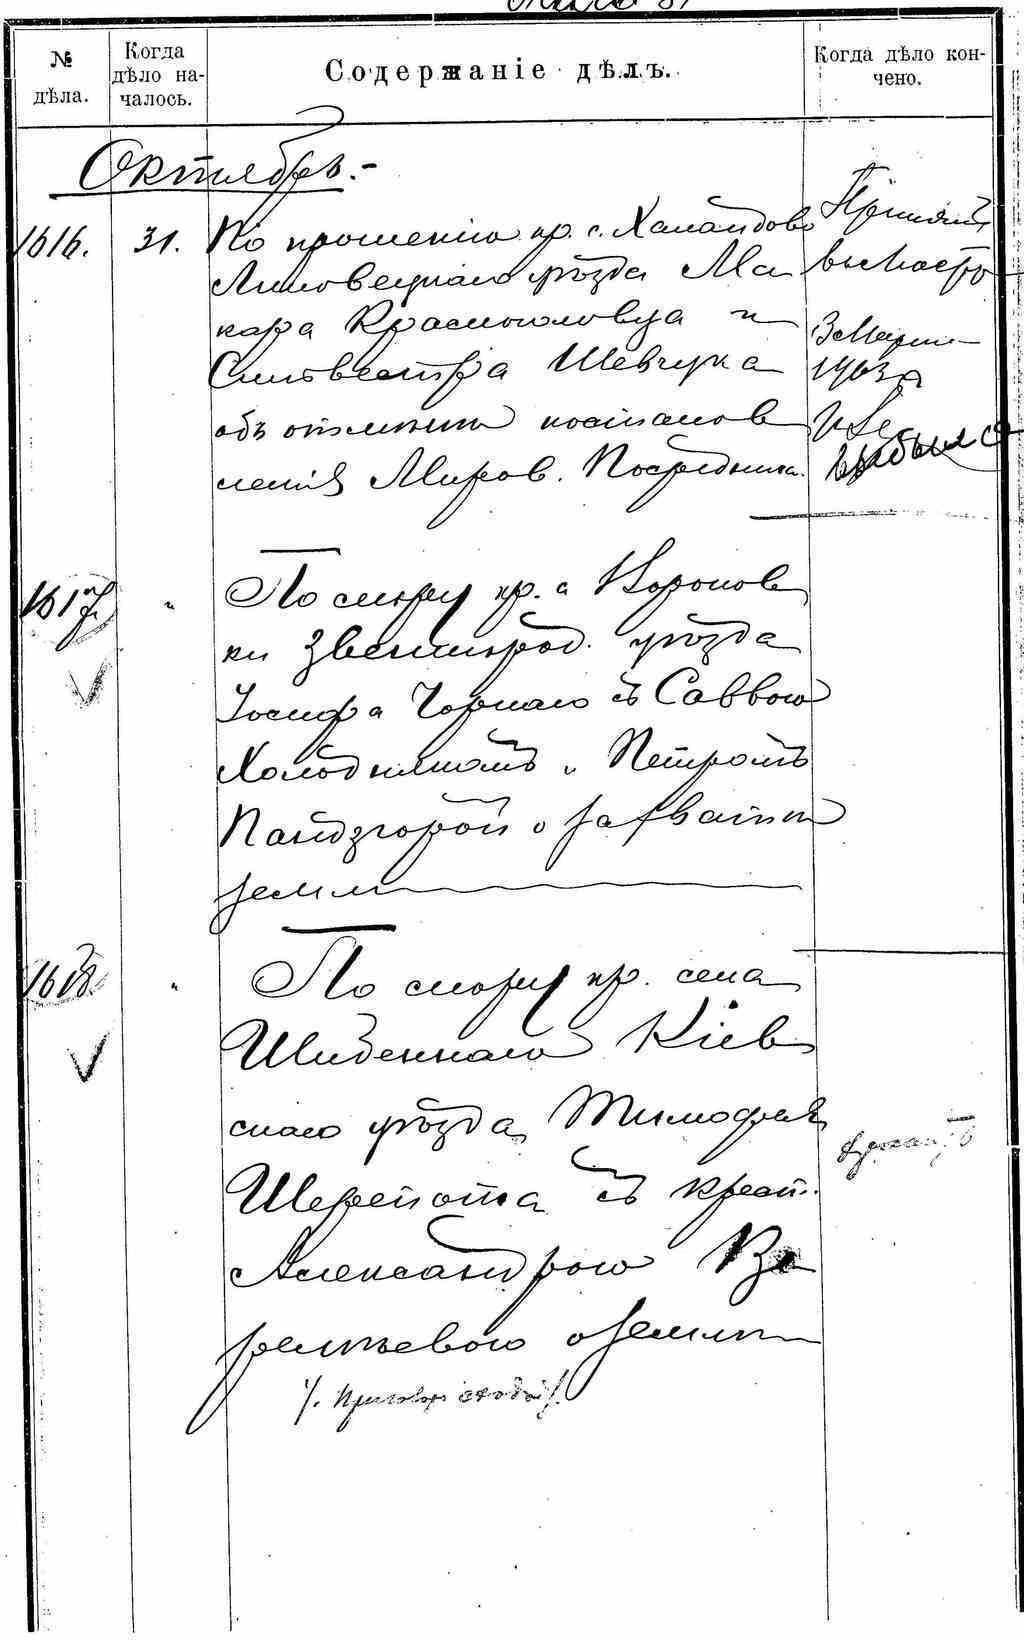 № дѣла.
Когда дѣло на-
чалось.
Содержаніе дѣлъ.
Когда дѣло кон-
чено.
Октябрь.-
1616. 31. По прошенію кр. с. Хамайдово
Липовецкаго уѣзда Ма
кара Красноголовца и
Сильвестра Шевчука
объ отмѣнѣ постанов
ленія Миров. Посредника.
3 Марта
1903 г
1617 " По спору кр. с Короков
ки Звенигород. уѣзда
Іосифа Чорнаго съ Саввою
Холоднякомъ и Петромъ
Пандзгорой о захватѣ
земли
1618. " По спору кр. села
Шибеннаго Кіев
скаго уѣзда, Тимофея
Шерепота съ крест.
Александрою Ве
ремѣевою о землѣ
/. Приговоръ сходой /.